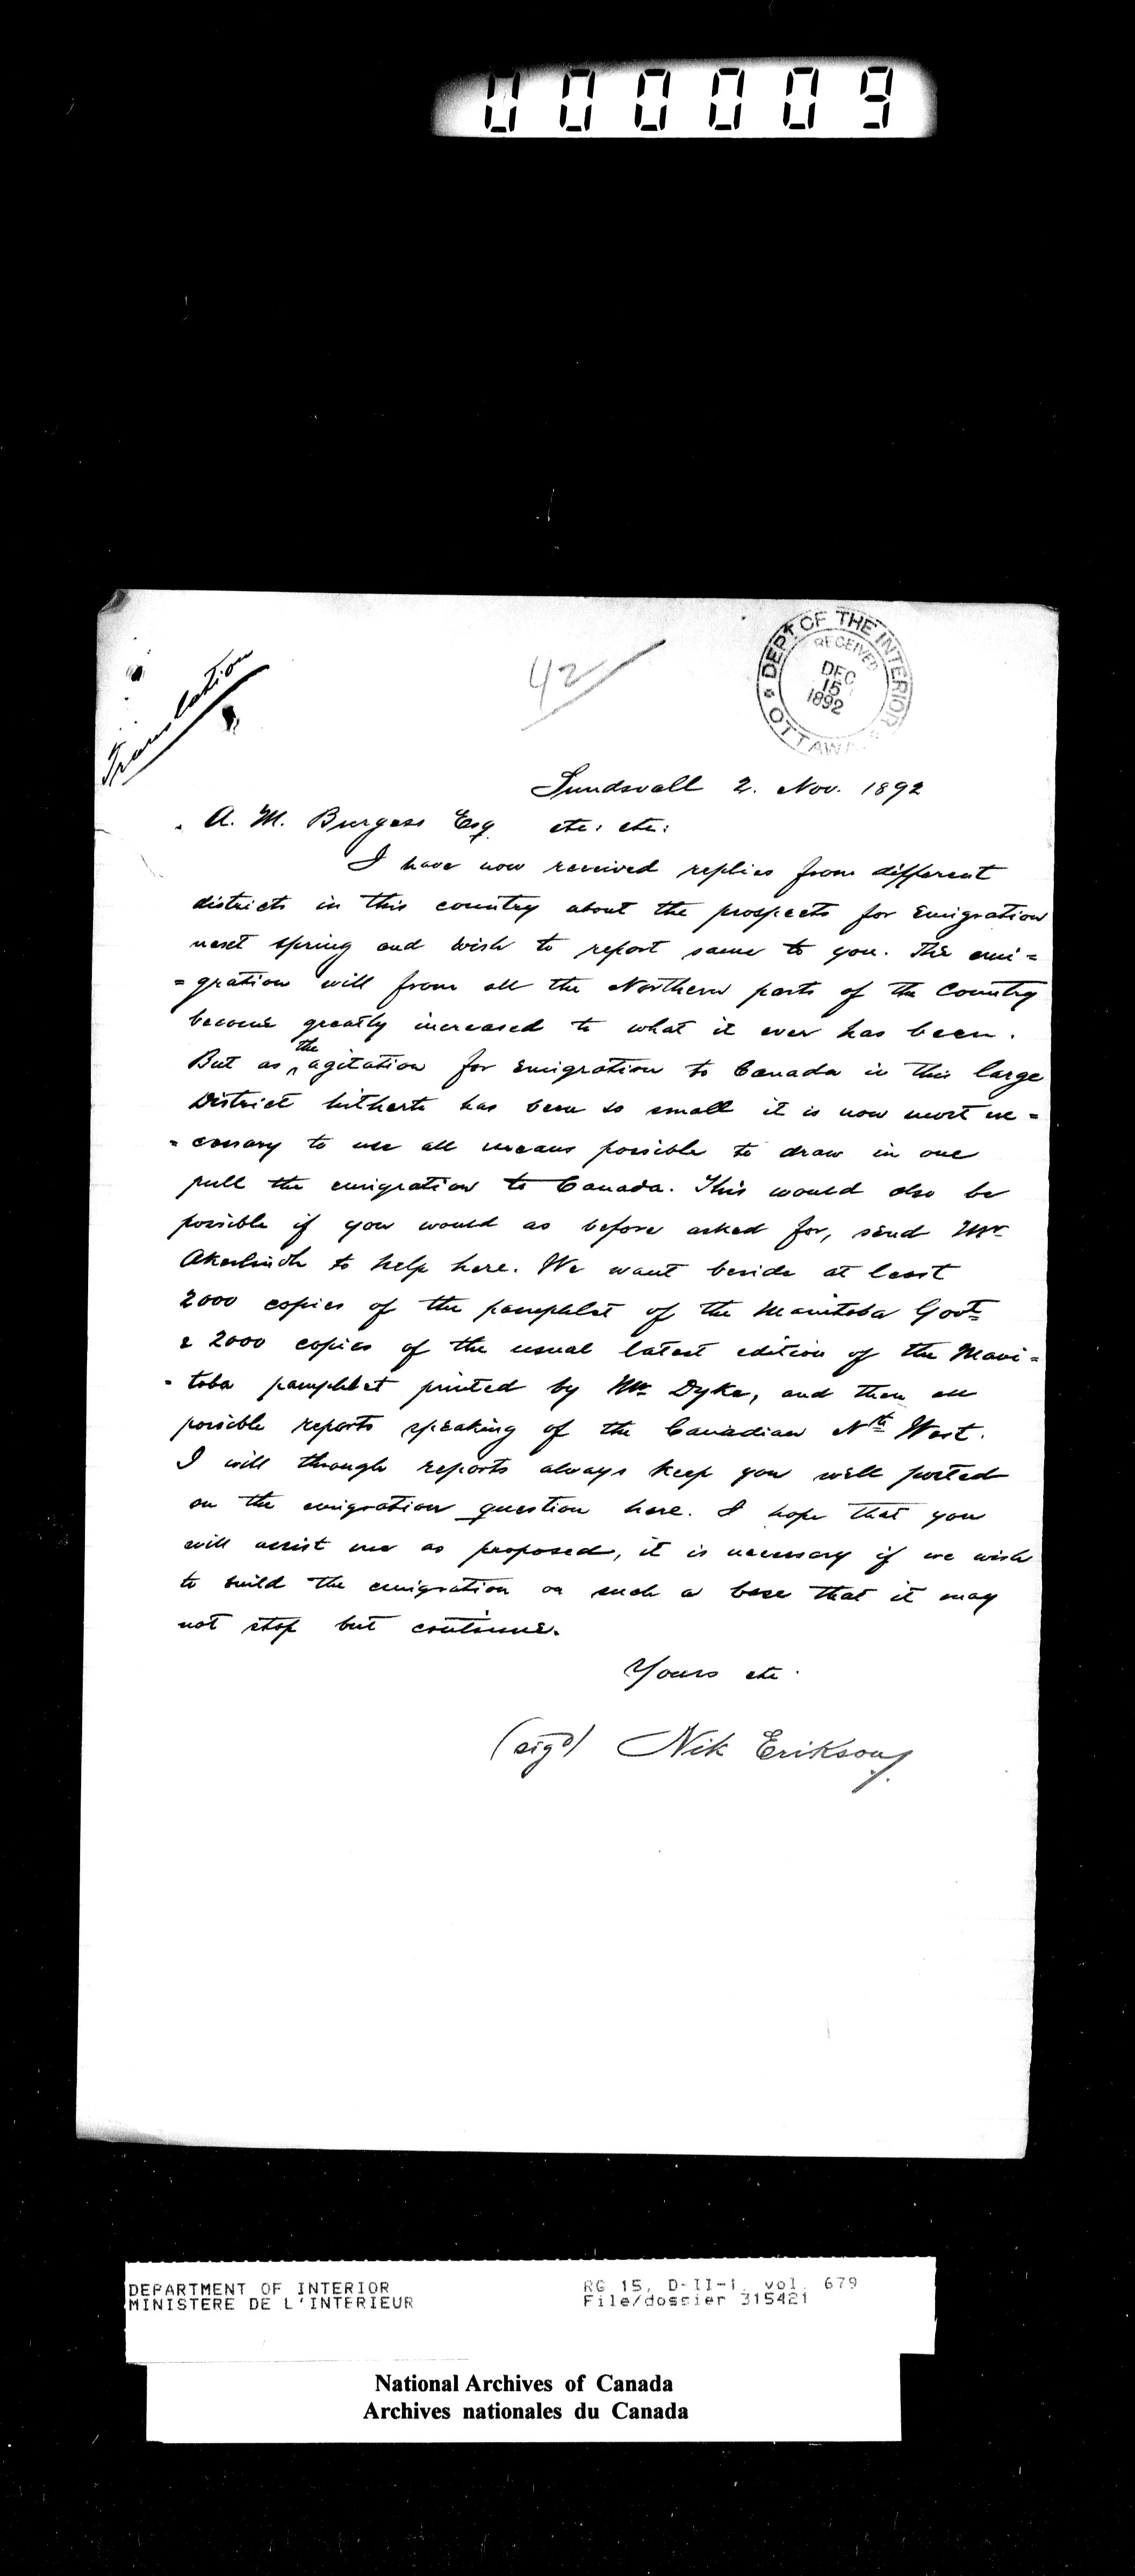 000009
Translation
42
DEPT OF THE INTERIOR
RECEIVED
DEC
15
1892
OTTAWA
Sundsvall 2. Nov. 1892
A. M. Burgess Esq etc: etc:
I have now received replies from different
districts in this country about the prospects for Emigration
next spring and wish to report same to you. The emi=
=gration will from all the Northern parts of the Country
become greatly increased to what it ever has been.
But as the agitation for Emigration to Canada in this large
District hitherto has been so small it is now most ne=
=cessary to use all means possible to draw in one
pull the emigration to Canada. This would also be
possible if you would as before asked for, send Mr
Akerlindh to help here. We want beside at least
2000 copies of the pamphlet of the Manitoba Govt
& 2000 copies of the usual latest edition of the Mani=
=toba pamphlet printed by Mr Dyke, and then all
possible reports speaking of the Canadian Nth West.
I will through reports always keep you well posted
on the emigration question here. I hope that you
will assist me as proposed, it is necessary if we wish
to build the emigration on such a base that it may
not stop but continue.
Yours etc.
(sigd) Nik Erikson
DEPARTMENT OF INTERIOR
MINISTERE DE L'INTERIEUR
RG 15, D-II-1, vol. 679
File/dossier 315421
National Archives of Canada
Archives nationales du Canada